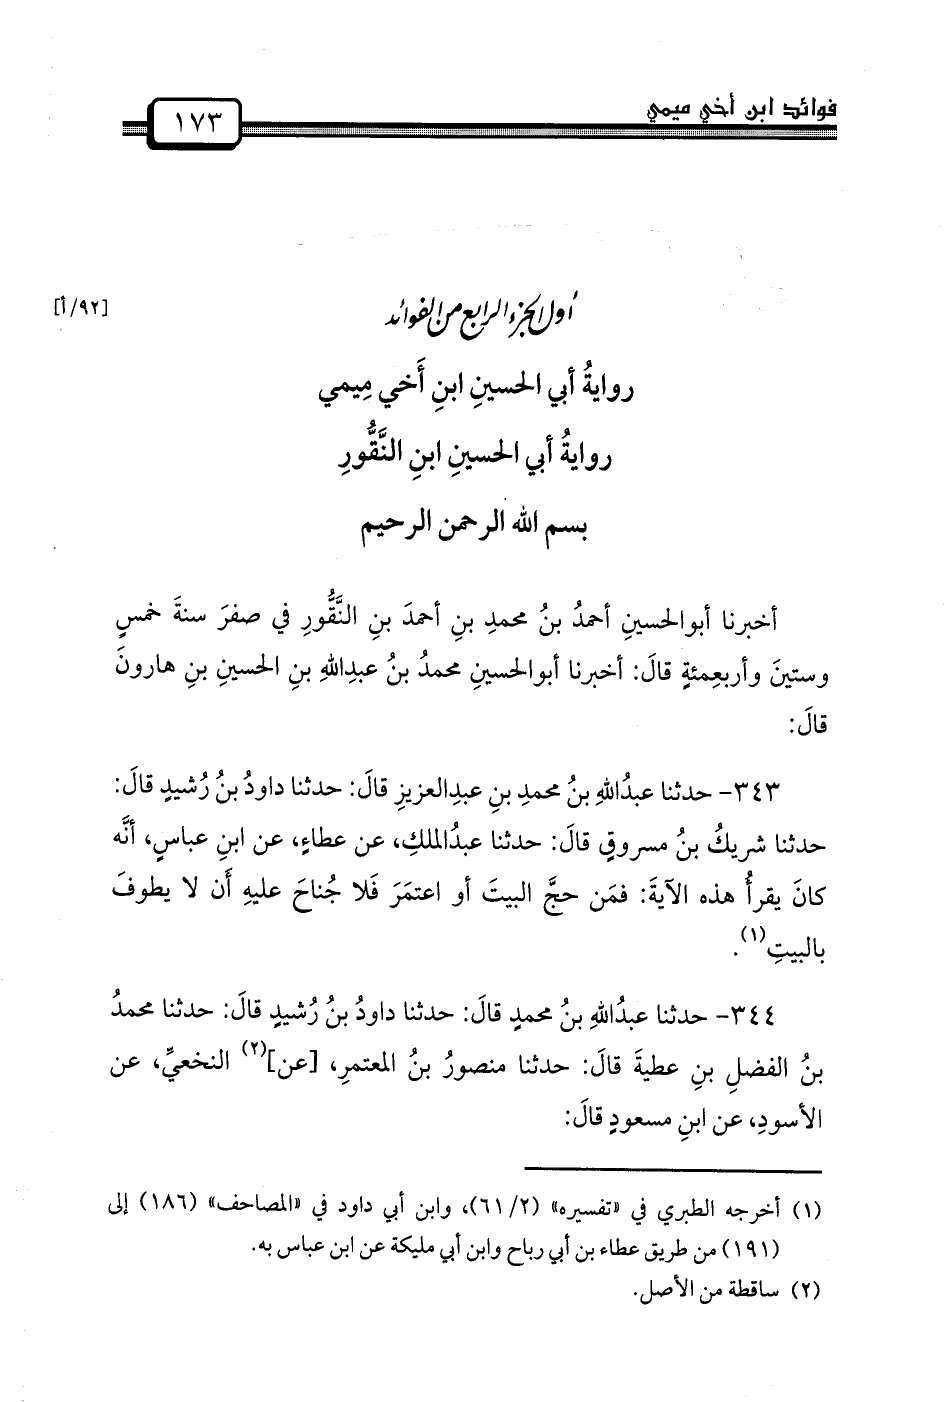 فوائد ابن أخي ميمي
١٧٣
أول الجزء الرابع من الفوائد
[٩٢/أ]
روايةُ أبي الحسينِ ابنِ أَخي مِيمي
روايةُ أبي الحسينِ ابنِ النَّقُّورِ
بسم الله الرحمن الرحيم
أخبرنا أبوالحسينِ أحمدُ بنُ محمدِ بنِ أحمدَ بنِ النَّقُّورِ في صفرَ سنةَ خمسٍ
وستينَ وأربعِمئةٍ قالَ: أخبرنا أبوالحسينِ محمدُ بنُ عبدِاللهِ بنِ الحسينِ بنِ هارونَ
قالَ:
٣٤٣- حدثنا عبدُاللهِ بنُ محمدِ بنِ عبدِالعزيزِ قالَ: حدثنا داودُ بنُ رُشيدٍ قالَ:
حدثنا شريكُ بنُ مسروقٍ قالَ: حدثنا عبدُالملكِ، عن عطاءٍ، عن ابنِ عباسٍ، أنَّه
كانَ يقرأُ هذه الآيةَ: فمَن حجَّ البيتَ أو اعتمَرَ فَلا جُناحَ عليهِ أَن لا يطوفَ
بالبيتِ(١).
٣٤٤- حدثنا عبدُاللهِ بنُ محمدٍ قالَ: حدثنا داودُ بنُ رُشيدٍ قالَ: حدثنا محمدُ
بنُ الفضلِ بنِ عطيةَ قالَ: حدثنا منصورُ بنُ المعتمرِ، [عن](٢) النخعيِّ، عن
الأسودِ، عن ابنِ مسعودٍ قالَ:
(١) أخرجه الطبري في «تفسيره» (٦١/٢)، وابن أبي داود في «المصاحف» (١٨٦) إلى
(١٩١) من طريق عطاء بن أبي رباح وابن أبي مليكة عن ابن عباس به.
(٢) ساقطة من الأصل.